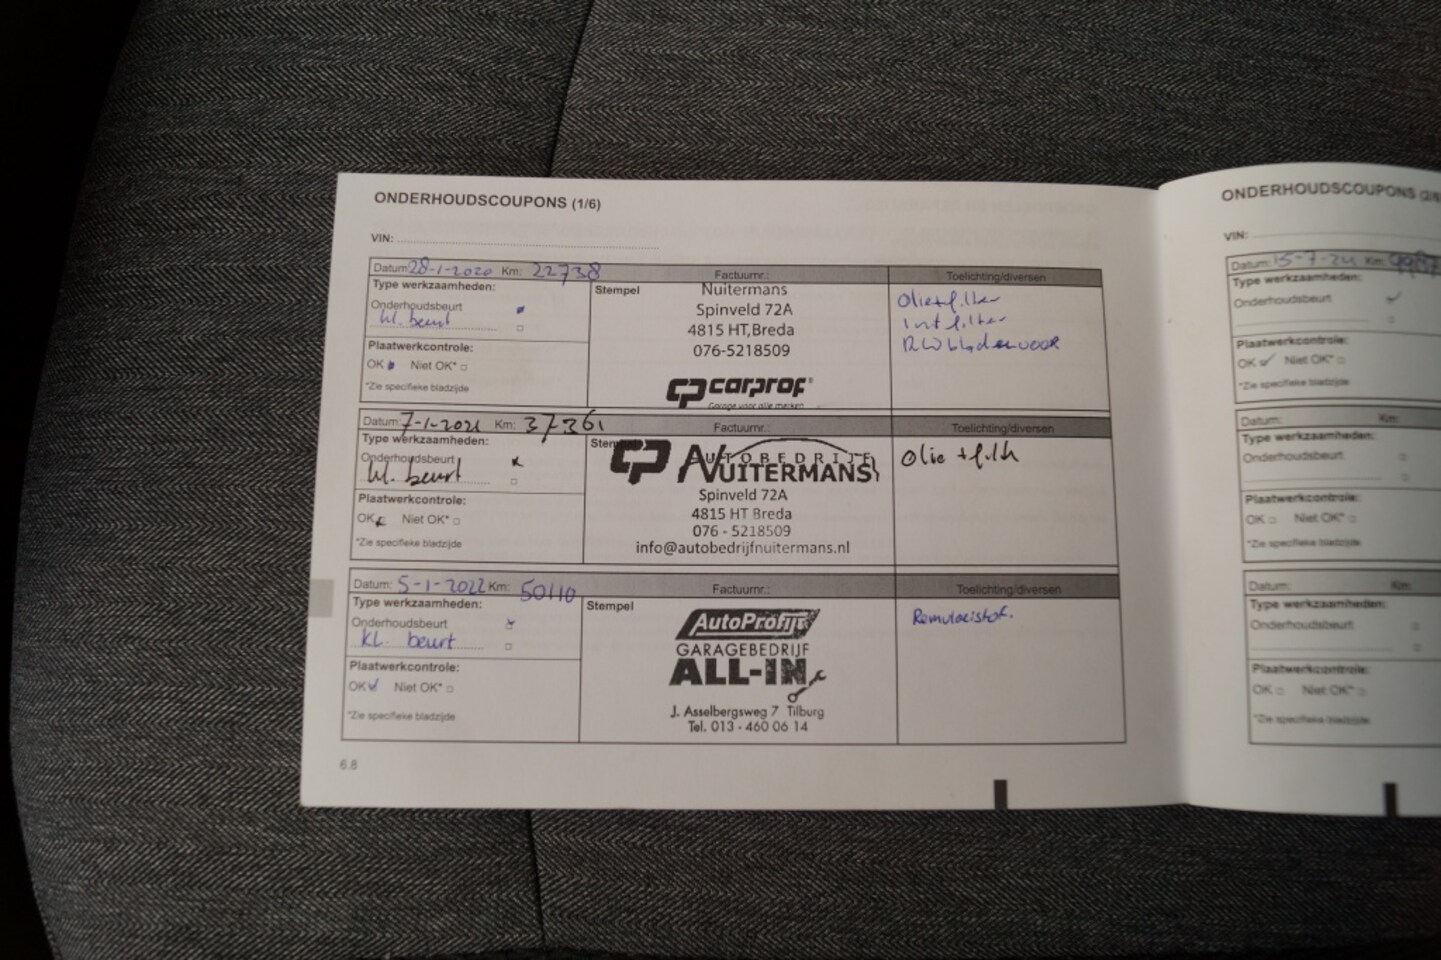 ONDERHOUDSCOUPONS (1/6)
VIN:
Datum: 28-1-2020 Km: 22738 Factuurnr.: Toelichting/diversen
Type werkzaamheden:
Onderhoudsbeurt
kl. beurt
Plaatwerkcontrole:
OK Niet OK*
*Zie specifieke bladzijde
Stempel
Nuitermans
Spinveld 72A
4815 HT, Breda
076-5218509
CP carprof
Garage voor alle merken
Olie+filter
int filter
RW bladen voor
Datum: 7-1-2021 Km: 37361 Factuurnr.: Toelichting/diversen
Type werkzaamheden:
Onderhoudsbeurt
kl. beurt
Plaatwerkcontrole:
OK Niet OK*
*Zie specifieke bladzijde
CP AUTOBEDRIJF
NUITERMANS
Spinveld 72A
4815 HT Breda
076 - 5218509
info@autobedrijfnuitermans.nl
Olie + filt
Datum: 5-1-2022 Km: 50110 Factuurnr.: Toelichting/diversen
Type werkzaamheden:
Onderhoudsbeurt
KL. beurt
Plaatwerkcontrole:
OK Niet OK*
*Zie specifieke bladzijde
Stempel
AutoProfijt
GARAGEBEDRIJF
ALL-IN
J. Asselbergsweg 7 Tilburg
Tel. 013 - 460 06 14
6.8
ONDERHOUDSCOUPONS
VIN:
Datum: 15-7-24 Km:
Type werkzaamheden:
Onderhoudsbeurt
Plaatwerkcontrole:
OK Niet OK*
*Zie specifieke bladzijde
Datum: Km:
Type werkzaamheden:
Onderhoudsbeurt
Plaatwerkcontrole:
OK Niet OK*
*Zie specifieke bladzijde
Datum: Km:
Type werkzaamheden:
Onderhoudsbeurt
Plaatwerkcontrole:
OK Niet OK*
*Zie specifieke bladzijde